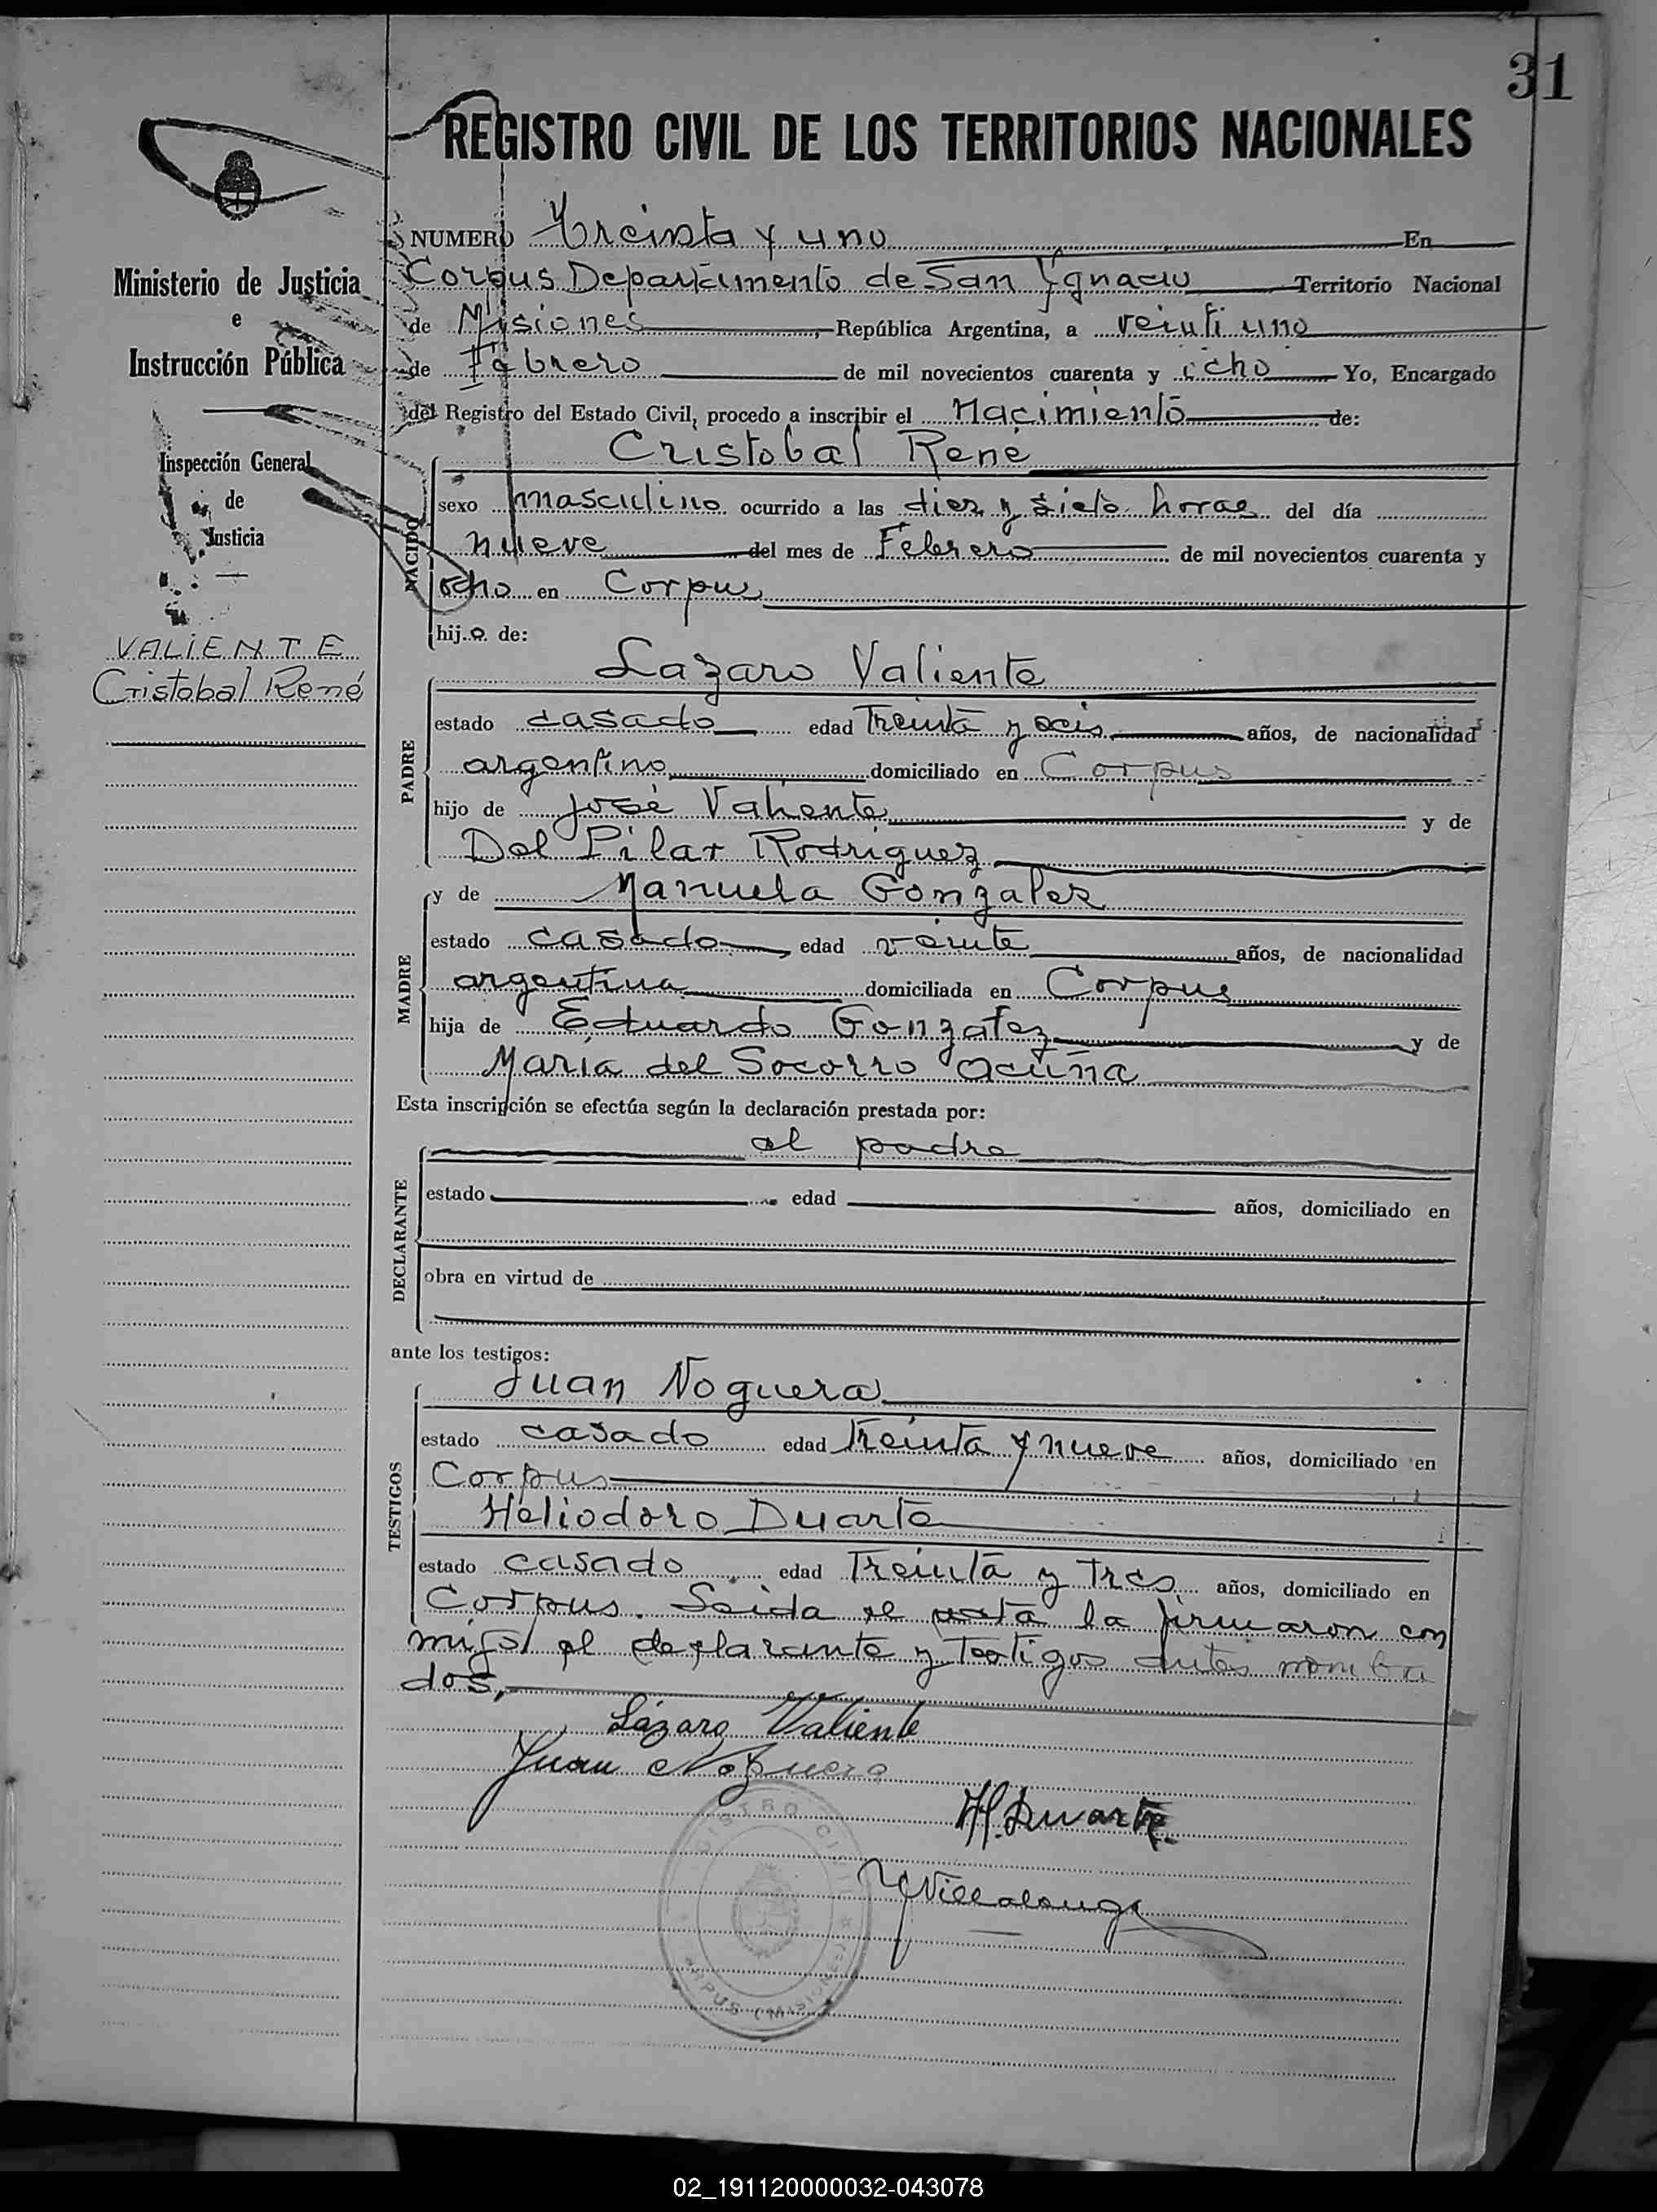 31
REGISTRO CIVIL DE LOS TERRITORIOS NACIONALES
Ministerio de Justicia
e
Instrucción Pública
Inspección General
de
Justicia
VALIENTE
Cristobal René
NUMERO Treinta y uno En
Corpus Departamento de San Ygnacio Territorio Nacional
de Misiones, República Argentina, a veinti uno
de Febrero de mil novecientos cuarenta y ocho Yo, Encargado
del Registro del Estado Civil, procedo a inscribir el Nacimiento de:
Cristobal René
NACIDO
sexo masculino ocurrido a las diez y siete horas del día
nueve del mes de Febrero de mil novecientos cuarenta y
ocho en Corpus
hijo de:
Lazaro Valiente
PADRE
estado casado edad Treinta y seis años, de nacionalidad
argentino domiciliado en Corpus
hijo de José Valiente y de
Del Pilar Rodriguez
y de Manuela Gonzalez
MADRE
estado casado edad veinte años, de nacionalidad
argentina domiciliada en Corpus
hija de Eduardo Gonzalez y de
María del Socorro Acuña
Esta inscripción se efectúa según la declaración prestada por:
el padre
DECLARANTE
estado edad años, domiciliado en
obra en virtud de
ante los testigos:
Juan Noguera
TESTIGOS
estado casado edad Treinta y nueve años, domiciliado en
Corpus
Heliodoro Duarte
estado casado edad Treinta y Tres años, domiciliado en
Corpus. Leida el acta la firmaron con
migo el declarante y Testigos antes nombra
dos,
Lázaro Valiente
Juan Noguera
H. Duarte
Villalonga
REGISTRO CIVIL
CORPUS (MISIONES)
02_191120000032-043078